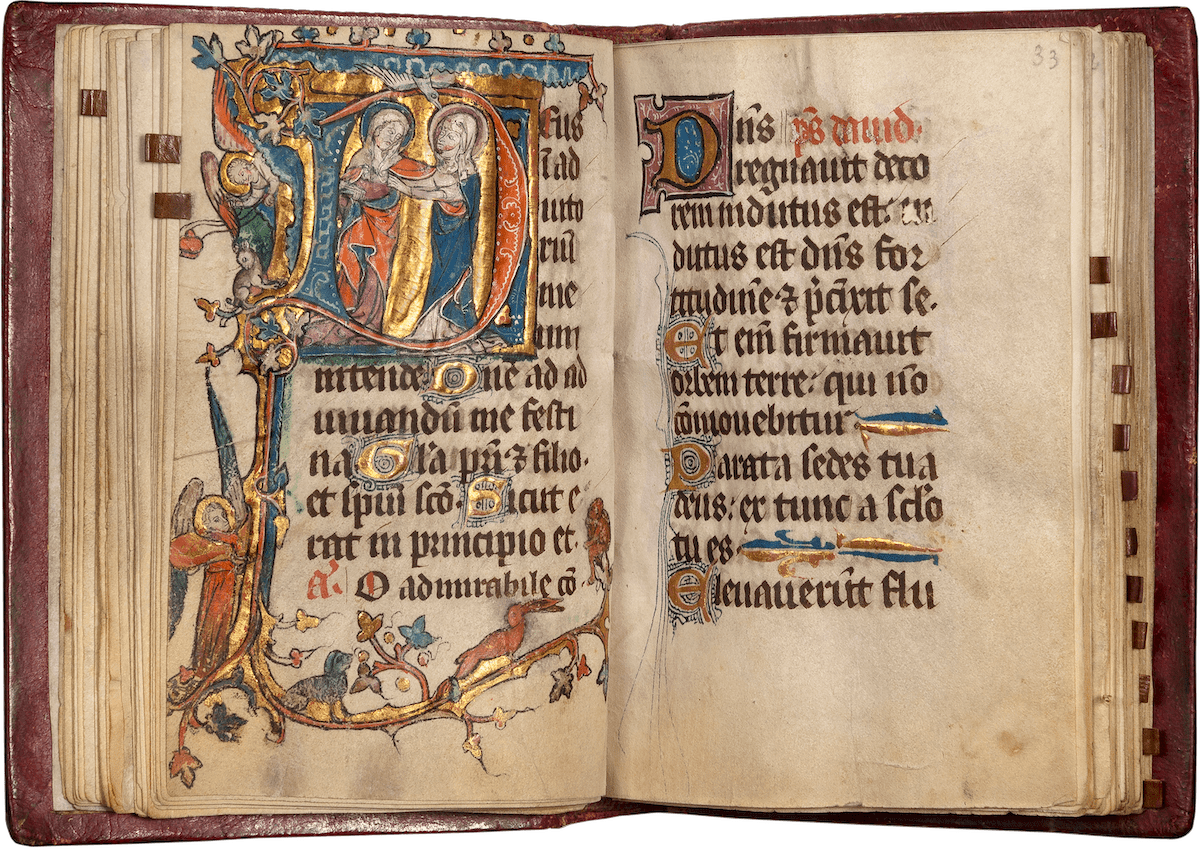 Deus
ī ad
iuto
riū
me
um
intende Dñe ad ad
iuuandū me festi
na Gl̄a pr̄i ⁊ filio.
et sp̄ui scō. Sicut e
rat in principio et.
a. O admirabile cō
33
Dn̄s ps̄ dauid.
regnauit deco
rem indutus est: in
dutus est dn̄s for
titudinē ⁊ p̄cīxit se.
Et em̄ firmauit
orbem terre: qui nō
cōmouebitur
Parata sedes tua
deus: ex tunc a sclō
tu es
Eleuauerūt flu